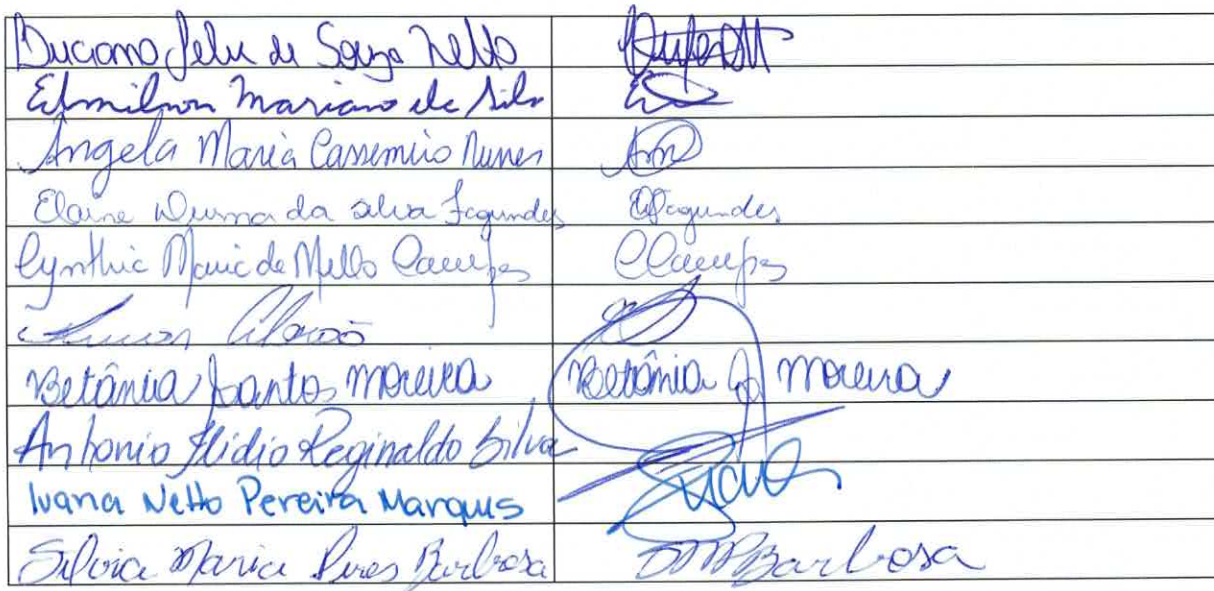 Luciano Felix de Souza Netto
Edmilson Mariano da Silva
Angela Maria Cassemiro Nunes
Elaine Wusma da Silva Fagundes EWFagundes
Cynthia Maria de Mello Campos CCampos
Betânia Santos Moreira Betânia S Moreira
Antonio Elidio Reginaldo Silva
Ivana Netto Pereira Marques Ivana
Silvia Maria Pires Barbosa SMPBarbosa